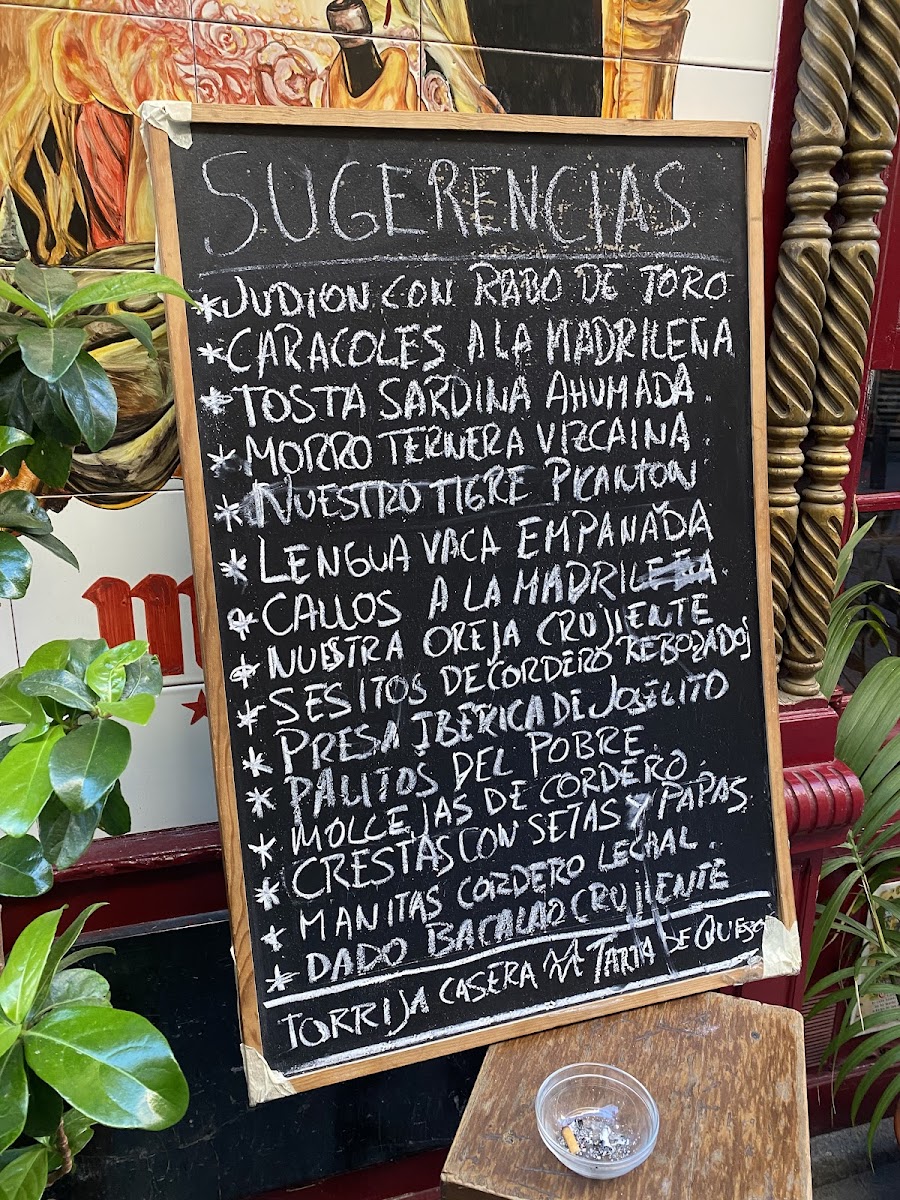 SUGERENCIAS
* JUDION CON RABO DE TORO
* CARACOLES A LA MADRILEÑA
* TOSTA SARDINA AHUMADA.
* MORRO TERNERA VIZCAINA
* NUESTRO TIGRE PICANTON
* LENGUA VACA EMPANADA
* CALLOS A LA MADRILEÑA
* NUESTRA OREJA CRUJIENTE
* SESITOS DE CORDERO REBOZADOS
* PRESA IBÉRICA DE JOSELITO
* PALITOS DEL POBRE
* MOLLEJAS DE CORDERO
* CRESTAS CON SETAS Y PAPAS
* MANITAS CORDERO LECHAL.
* DADO BACALAO CRUJIENTE
TORRIJA CASERA TARTA DE QUESO
m